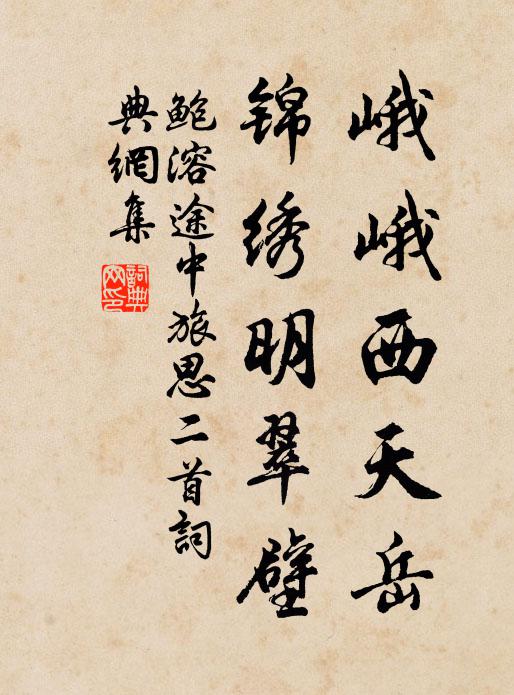 峨峨西天岳
锦绣明翠壁
鲍溶途中旅思二首詞
典網集
詞典
网印